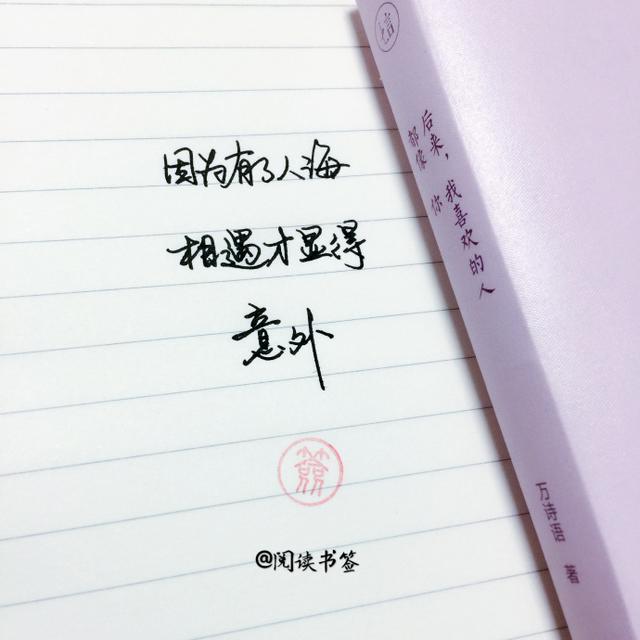 因为有了人海
相遇才显得
意外
@阅读书签
后来，我喜欢的人
都像你
万诗语 著